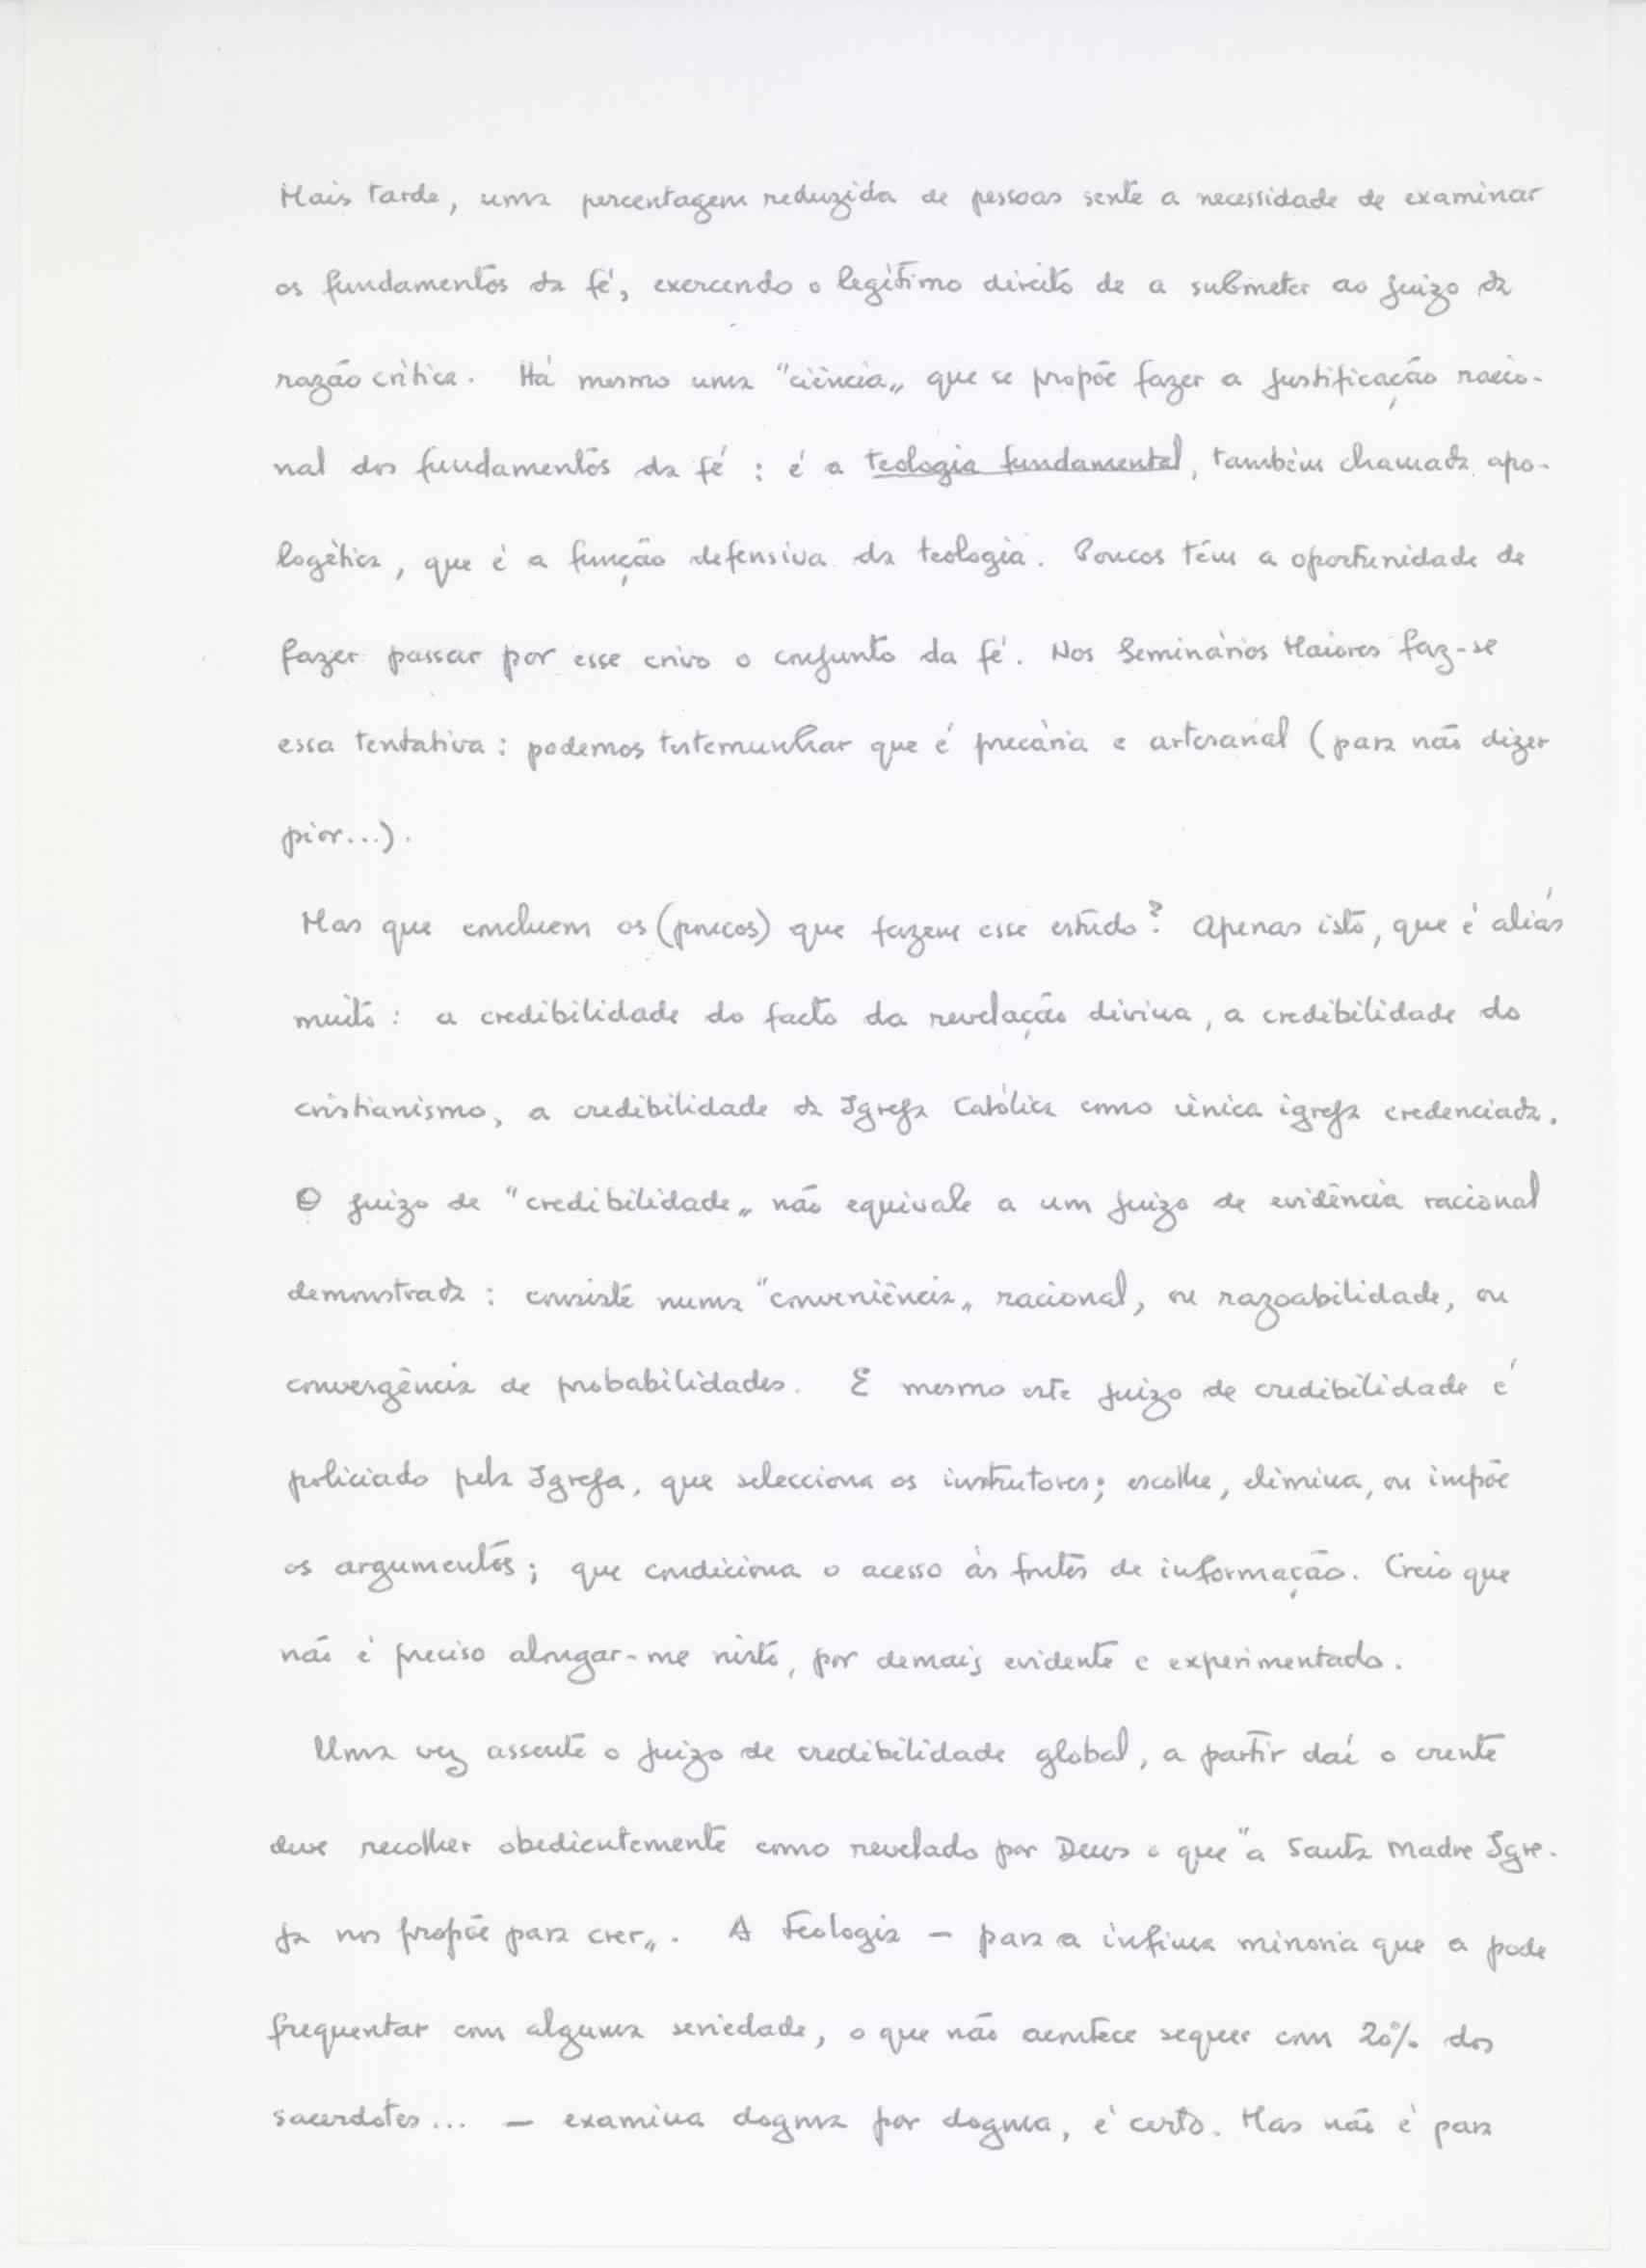 Mais tarde, uma percentagem reduzida de pessoas sente a necessidade de examinar
os fundamentos da fé, exercendo o legítimo direito de a submeter ao juizo da
razão crítica. Há mesmo uma "ciência„ que se propõe fazer a justificação racio-
nal dos fundamentos da fé : é a teologia fundamental, também chamada apo-
logética, que é a função defensiva da teologia. Poucos têm a oportunidade de
fazer passar por esse crivo o conjunto da fé. Nos Seminários Maiores faz-se
essa tentativa : podemos testemunhar que é precária e artesanal (para não dizer
pior...).
Mas que concluem os (poucos) que fazem esse estudo? Apenas isto, que é aliás
muito : a credibilidade do facto da revelação divina, a credibilidade do
cristianismo, a credibilidade da Igreja Católica como única igreja credenciada.
O juizo de "credibilidade„ não equivale a um juizo de evidência racional
demonstrada : consiste numa "conveniência„ racional, ou razoabilidade, ou
convergência de probabilidades. E mesmo este juizo de credibilidade é
policiado pela Igreja, que selecciona os instrutores; escolhe, elimina, ou impõe
os argumentos; que condiciona o acesso às fontes de informação. Creio que
não é preciso alongar-me nisto, por demais evidente e experimentado.
Uma vez assente o juizo de credibilidade global, a partir daí o crente
deve recolher obedientemente como revelado por Deus o que "a Santa Madre Igre-
ja nos propõe para crer„. A Teologia — para a ínfima minoria que a pode
frequentar com alguma seriedade, o que não acontece sequer com 20% dos
sacerdotes... — examina dogma por dogma, é certo. Mas não é para